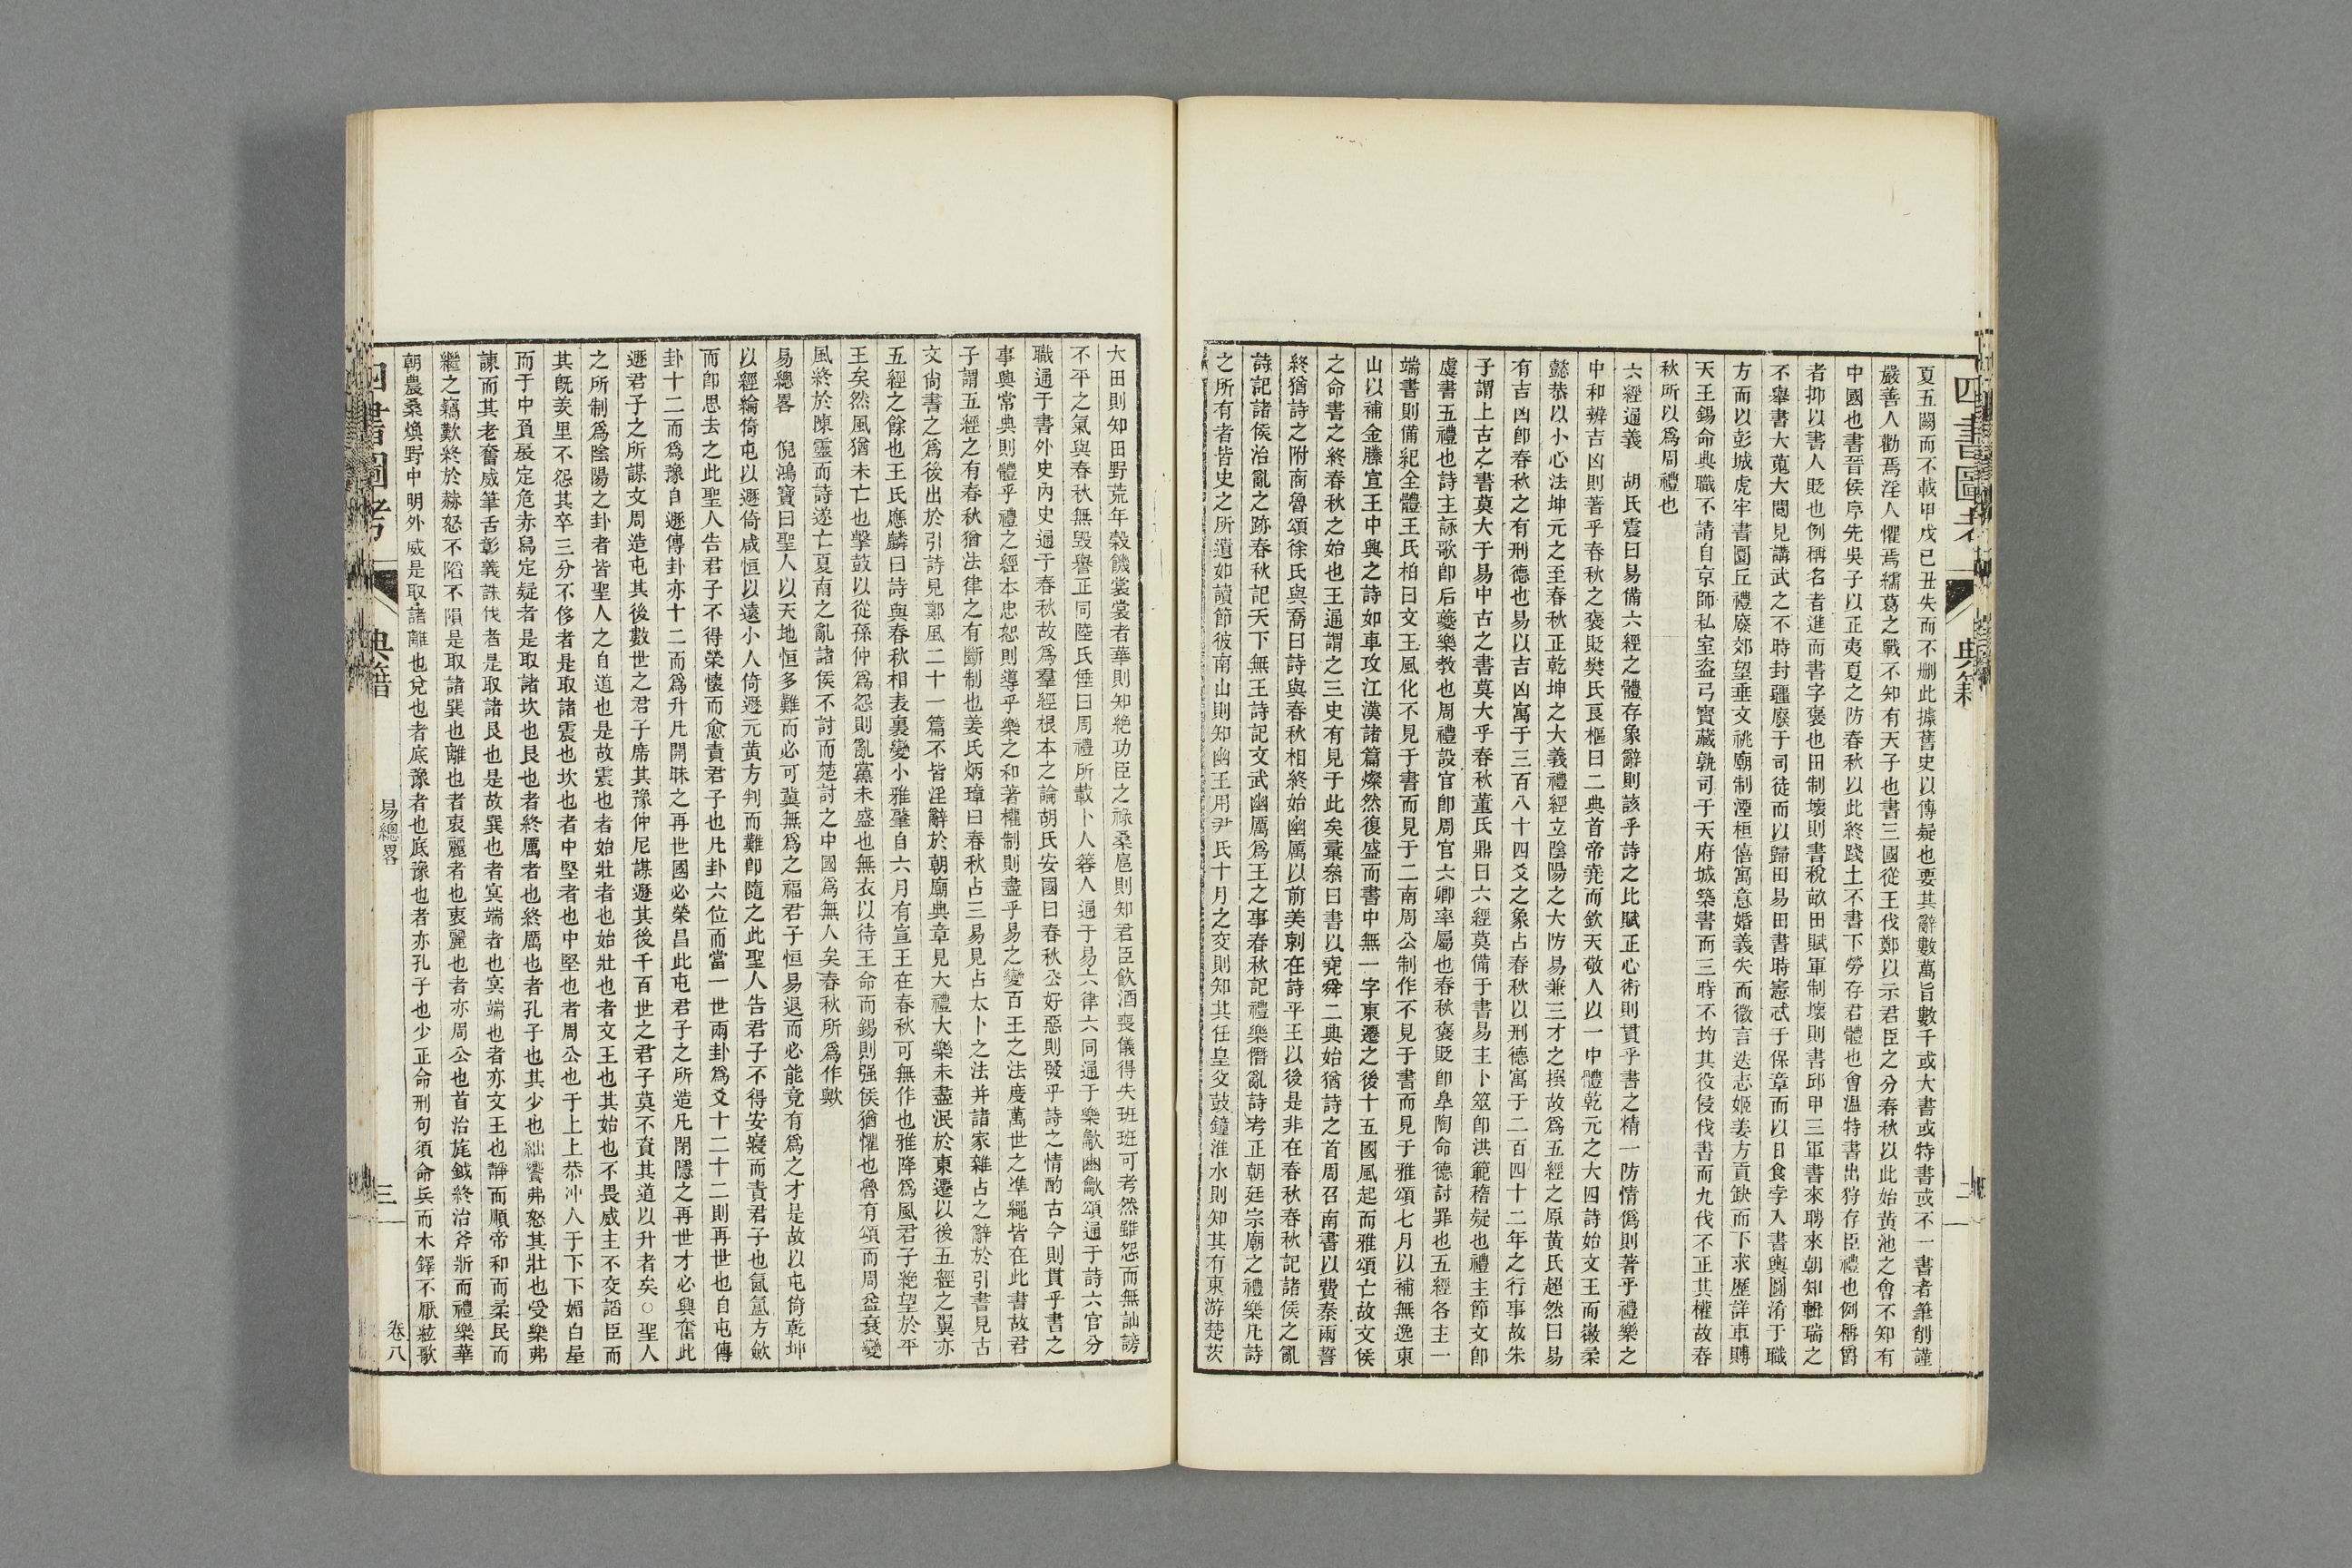 四書圖考
典籍
二
夏五闕而不載甲戌己丑失而不刪此據舊史以傳疑也要其辭數萬旨數千或大書或特書或不一書者筆削謹
嚴善人勸焉淫人懼焉繻葛之戰不知有天子也書三國從王伐鄭以示君臣之分春秋以此始黃池之會不知有
中國也書晉侯序先吳子以正夷夏之防春秋以此終踐土不書下勞存君體也會溫特書出狩存臣禮也例稱爵
者抑以書人貶也例稱名者進而書字褒也田制壞則書稅畝田賦軍制壞則書邱甲三軍書來聘來朝知輯瑞之
不舉書大蒐大閱見講武之不時封疆廢于司徒而以歸田易田書時憲忒于保章而以日食孛入書輿圖淆于職
方而以彭城虎牢書圜丘禮廢郊望垂文祧廟制湮桓僖寓意婚義失而徵言迭志姬姜方貢缺而下求歷詳車賻
天王錫命典職不請自京師私室盜弓實藏孰司于天府城築書而三時不均其役侵伐書而九伐不正其權故春
秋所以爲周禮也
六經通義　胡氏震曰易備六經之體存象辭則該乎詩之比賦正心術則貫乎書之精一防情僞則著乎禮樂之
中和辨吉凶則著乎春秋之褒貶樊氏良樞曰二典首帝堯而欽天敬人以一中體乾元之大四詩始文王而徽柔
懿恭以小心法坤元之至春秋正乾坤之大義禮經立陰陽之大防易兼三才之撰故爲五經之原黃氏超然曰易
有吉凶卽春秋之有刑德也易以吉凶寓于三百八十四爻之象占春秋以刑德寓于二百四十二年之行事故朱
子謂上古之書莫大于易中古之書莫大乎春秋董氏鼎曰六經莫備于書易主卜筮卽洪範稽疑也禮主節文卽
虞書五禮也詩主詠歌卽后夔樂教也周禮設官卽周官六卿率屬也春秋褒貶卽皐陶命德討罪也五經各主一
端書則備紀全體王氏柏曰文王風化不見于書而見于二南周公制作不見于書而見于雅頌七月以補無逸東
山以補金縢宣王中興之詩如車攻江漢諸篇燦然復盛而書中無一字東遷之後十五國風起而雅頌亡故文侯
之命書之終春秋之始也王通謂之三史有見于此矣彙叅曰書以堯舜二典始猶詩之首周召南書以費秦兩誓
終猶詩之附商魯頌徐氏與喬曰詩與春秋相終始幽厲以前美刺在詩平王以後是非在春秋春秋記諸侯之亂
詩記諸侯治亂之跡春秋記天下無王詩記文武幽厲爲王之事春秋記禮樂僭亂詩考正朝廷宗廟之禮樂凡詩
之所有者皆史之所遺如讀節彼南山則知幽王用尹氏十月之交則知其任皇父鼓鐘淮水則知其有東游楚茨
大田則知田野荒年穀饑裳裳者華則知絶功臣之祿桑扈則知君臣飲酒喪儀得失班班可考然雖怨而無訕謗
不平之氣與春秋無毀譽正同陸氏佃曰周禮所載卜人簭人通于易六律六同通于樂龡幽龡頌通于詩六官分
職通于書外史內史通于春秋故爲羣經根本之論胡氏安國曰春秋公好惡則發乎詩之情酌古今則貫乎書之
事興常典則體乎禮之經本忠恕則導乎樂之和著權制則盡乎易之變百王之法度萬世之準繩皆在此書故君
子謂五經之有春秋猶法律之有斷制也姜氏炳璋曰春秋占三易見占太卜之法并諸家雜占之辭於引書見古
文尙書之爲後出於引詩見鄭風二十一篇不皆淫辭於朝廟典章見大禮大樂未盡泯於東遷以後五經之翼亦
五經之餘也王氏應麟曰詩與春秋相表裏變小雅肇自六月有宣王在春秋可無作也雅降爲風君子絶望於平
王矣然風猶未亡也擊鼓以從孫仲爲怨則亂黨未盛也無衣以待王命而錫則强侯猶懼也魯有頌而周益衰變
風終於陳靈而詩遂亡夏南之亂諸侯不討而楚討之中國爲無人矣春秋所爲作歟
易總畧　倪鴻寶曰聖人以天地恒多難而必可冀無爲之福君子恒易退而必能竟有爲之才是故以屯倚乾坤
以經綸倚屯以遯倚咸恒以遠小人倚遯元黃方判而難卽隨之此聖人告君子不得安寢而責君子也氤氳方歛
而卽思去之此聖人告君子不得榮懷而愈責君子也凡卦六位而當一世兩卦爲爻十二十二則再世也自屯傳
卦十二而爲豫自遯傳卦亦十二而爲升凡開昧之再世國必榮昌此屯君子之所造凡閉隱之再世才必興奮此
遯君子之所謀文周造屯其後數世之君子席其豫仲尼謀遯其後千百世之君子莫不資其道以升者矣○聖人
之所制爲陰陽之卦者皆聖人之自道也是故震也者始壯者也始壯也者文王也其始也不畏威主不交謟臣而
其旣羑里不怨其卒三分不侈者是取諸震也坎也者中堅者也中堅也者周公也于上上恭沖人于下下媚白屋
而于中負扆定危赤舄定疑者是取諸坎也艮也者終厲者也終厲也者孔子也其少也絀饗弗怒其壯也受樂弗
諫而其老奮威筆舌彰義誅伐者是取諸艮也是故巽也者寘端者也寘端也者亦文王也靜而順帝和而柔民而
繼之竊歎終於赫怒不陷不隕是取諸巽也離也者衷麗者也衷麗也者亦周公也首治旄鉞終治斧斨而禮樂華
朝農桑煥野中明外威是取諸離也兌也者底豫者也底豫也者亦孔子也少正命刑句須命兵而木鐸不厭絃歌
四書圖考
典籍
易總畧
三
卷八